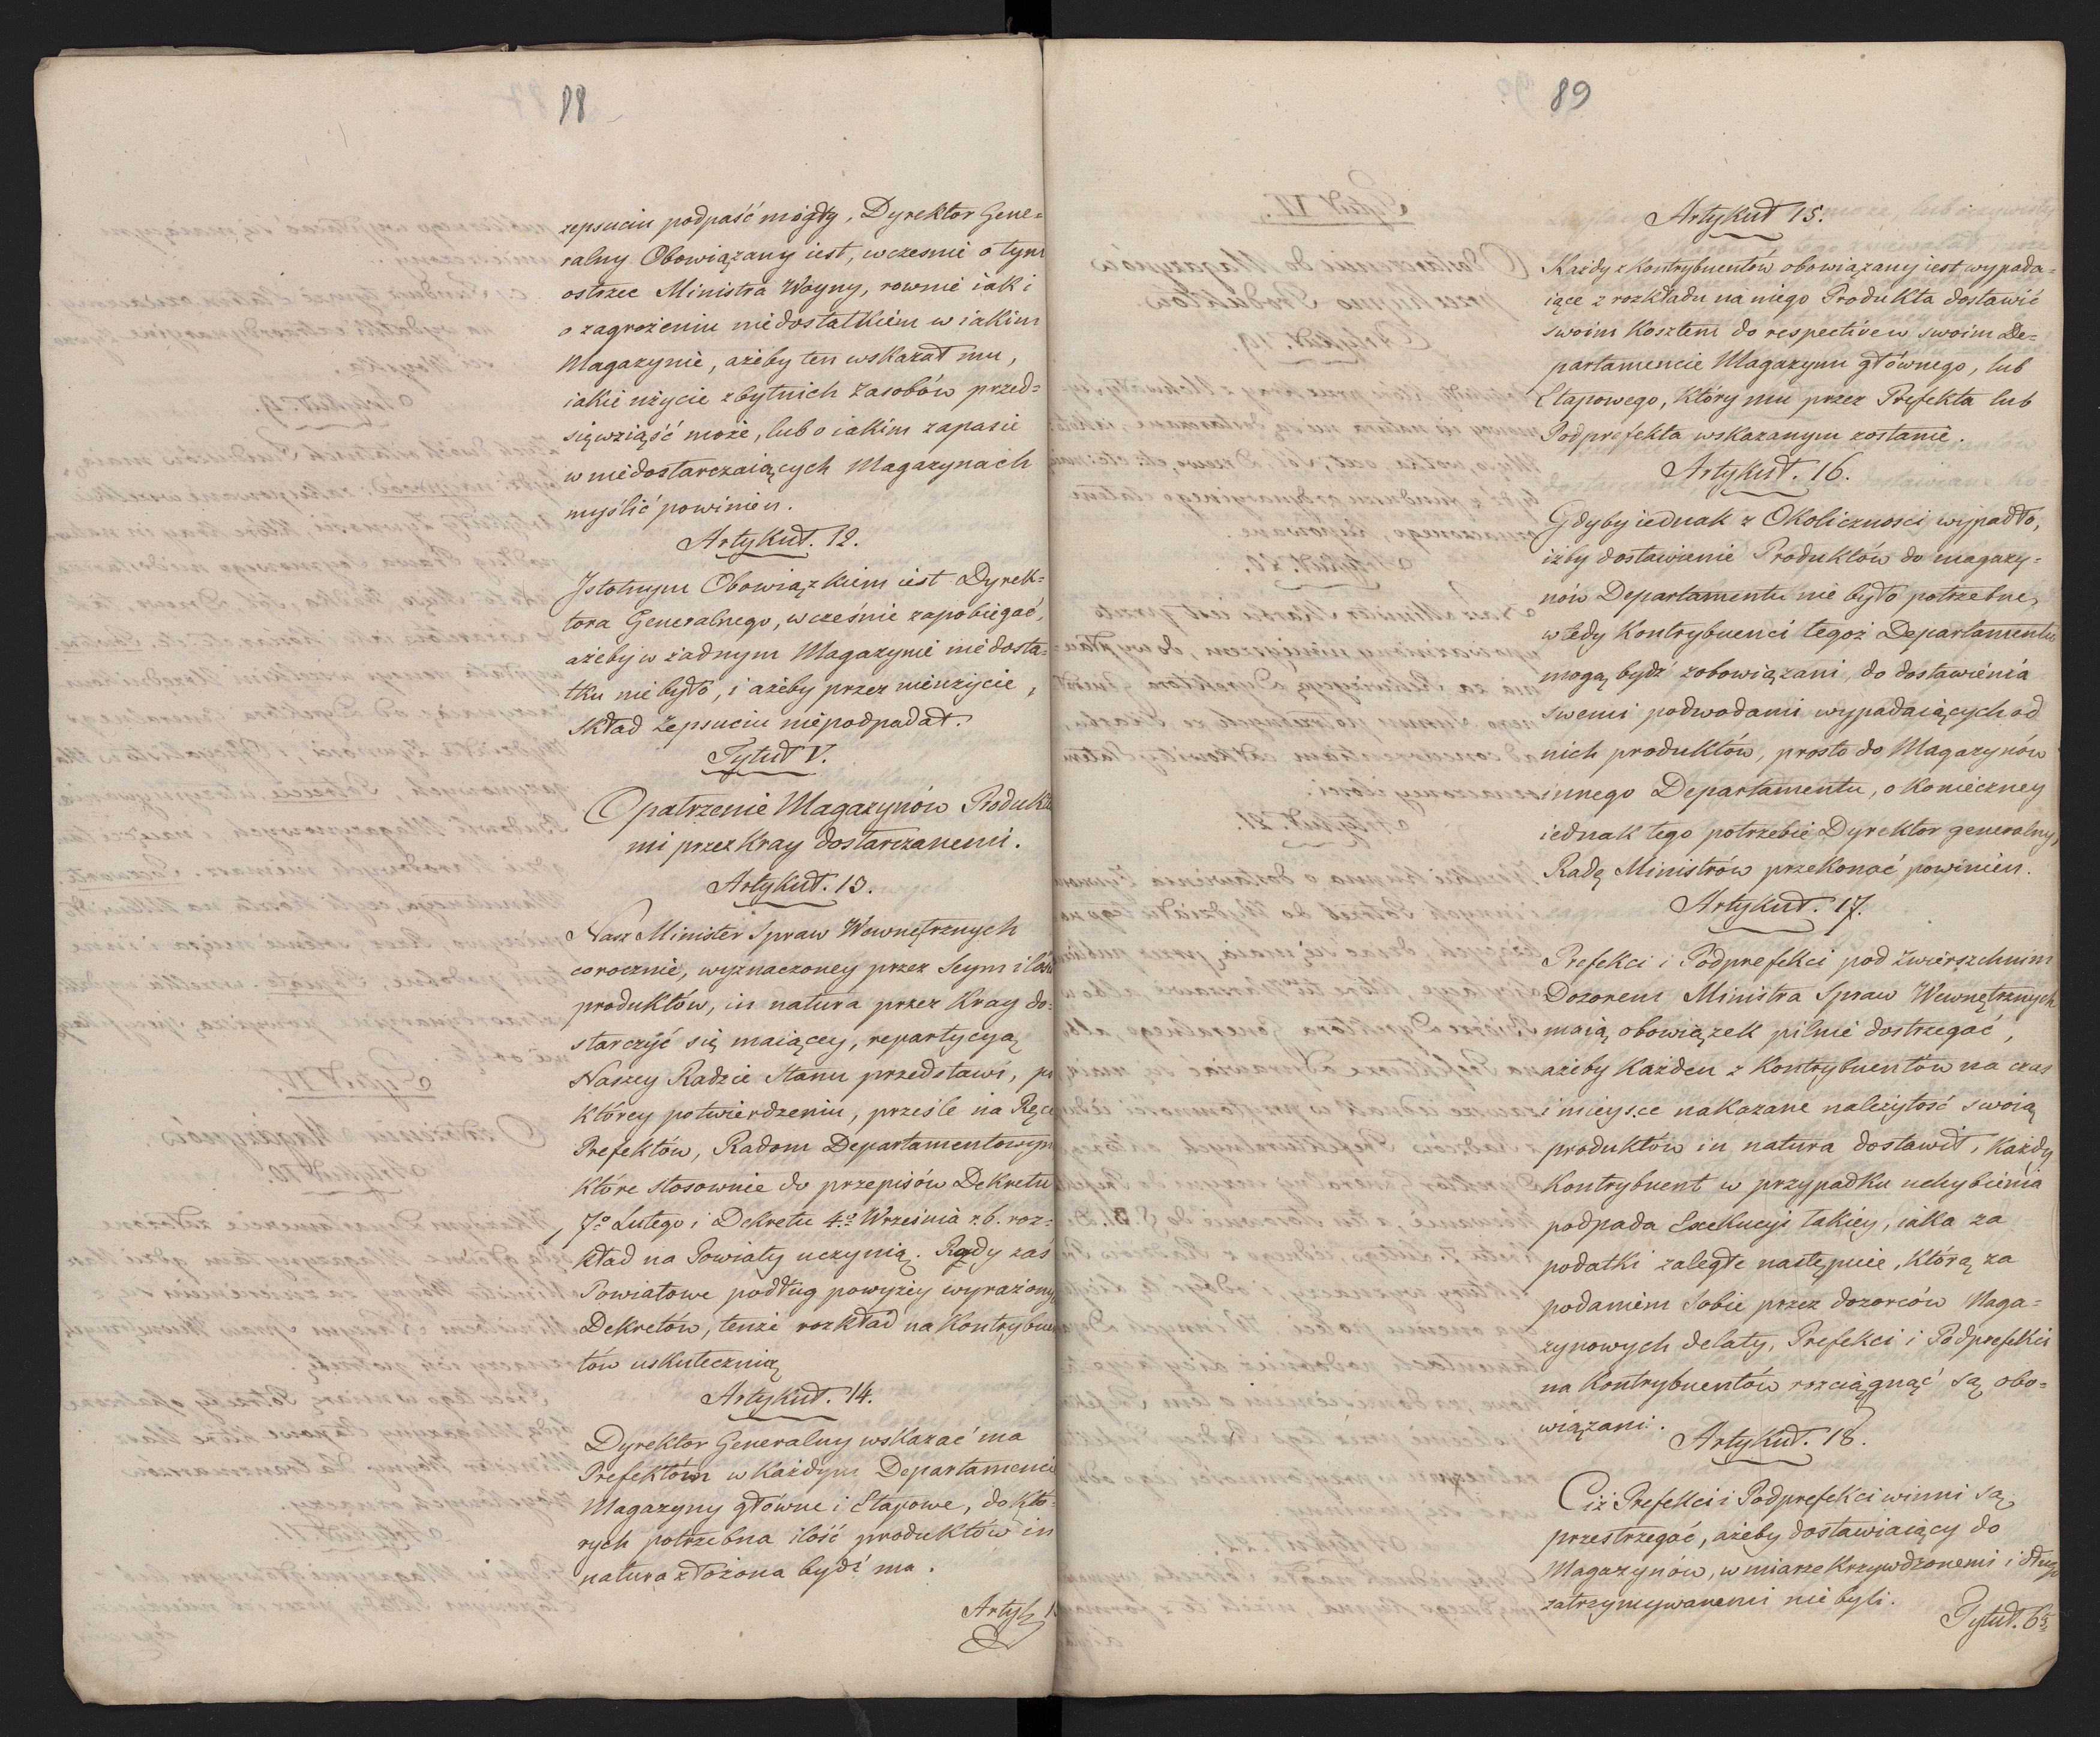 88
zepsuciu podpaść mógły, Dyrektor Gene=
ralny Obowiązany iest, wczesnie o tym
ostrzec Ministra Woyny, rownie iak i
o zagrożeniu niedostatkiem w iakim
Magazynie, ażeby ten wskazał mu,
iakie użycie zbytnich Zasobów przed=
sięwziąść może, lub o iakim zapasie
w niedostarczaiących Magazynach
myślić powinien.
Artykuł. 12.
Jstotnym Obowiązkiem iest Dyrek=
tora Generalnego, wcześnie zapobiegać,
ażeby w żadnym Magazynie niedosta=
tku nie było, i ażeby przez nieużycie,
skład Zepsuciu niepodpadał.
Tytuł V.
Opatrzenie Magazynów Produkta
mi przez Kray dostarczanemi.
Artykuł. 13.
Nasz Minister Spraw Wewnętrznych
corocznie, wyznaczoney przez Seym ilości
produktów, in natura przez Kray do=
starczyć się maiącey, repartycyą
Naszey Radzie Stanu przedstawi, po
którey potwierdzeniu, prześle na Ręce
Prefektów, Radom Departamentowym
które stosownie do przepisów Dekretu
7º Lutego i Dekretu 4º Września r. b. roz=
kład na Powiaty uczynią. Rady zaś
Powiatowe podług powyżey wyrażony
Dekretów, tenże rozkład na Kontrybuen
tów uskutecznią
Artykuł. 14.
Dyrektor Generalny wskazać ma
Prefektóm w każdym Departamencie
Magazyny główne i Etapowe, do któ=
rych potrzebna ilość produktów in
natura złożona bydź ma.
Artyk 1
89
Artykuł 15.
Każdy z Kontrybuentów obowiązany iest wypada=
iące z rozkładu na niego Produkta dostawić
swoim Kosztem do respective w swoim De=
partamencie Magazynu głównego, lub
Etapowego, który mu przez Prefekta lub
Podprefekta wskazanym zostanie.
Artykuł. 16.
Gdyby iednak z Okoliczności wypadło,
iżby dostawienie Produktów do magazy=
nów Departamentu nie było potrzebne,
wtedy Kontrybuenci tegoż Departamentu
mogą bydź zobowiązani, do dostawienia
swemi podwodami wypadaiących od
nich produktów, prosto do Magazynów
innego Departamentu, o konieczney
iednak tego potrzebie Dyrektor generalny,
Radę Ministrów przekonać powinien.
Artykuł. 17.
Prefekci i Podprefekci pod Zwierzchnim
Dozorem Ministra Spraw Wewnętrznych
maią obowiązek pilnie dostrzegać,
ażeby każden z Kontrybuentów na czas
i mieysce nakazane należytość swoią
produktów in natura dostawił, każdy
Kontrybuent w przypadku uchybienia
podpada Exekucyi takiey, iaka za
podatki zaległe następuie, którą za
podaniem Sobie przez dozorców Maga=
zynowych delaty, Prefekci i Podprefekci
na Kontrybuentów rozciągnąć są obo=
wiązani.
Artykuł. 18.
Ciż Prefekci i Podprefekci winni są
przestrzegać, ażeby dostawiaiący do
Magazynów, w miarze krzywdzonemi i długo
zatrzymywanemi nie byli.
Tytuł. 6ty